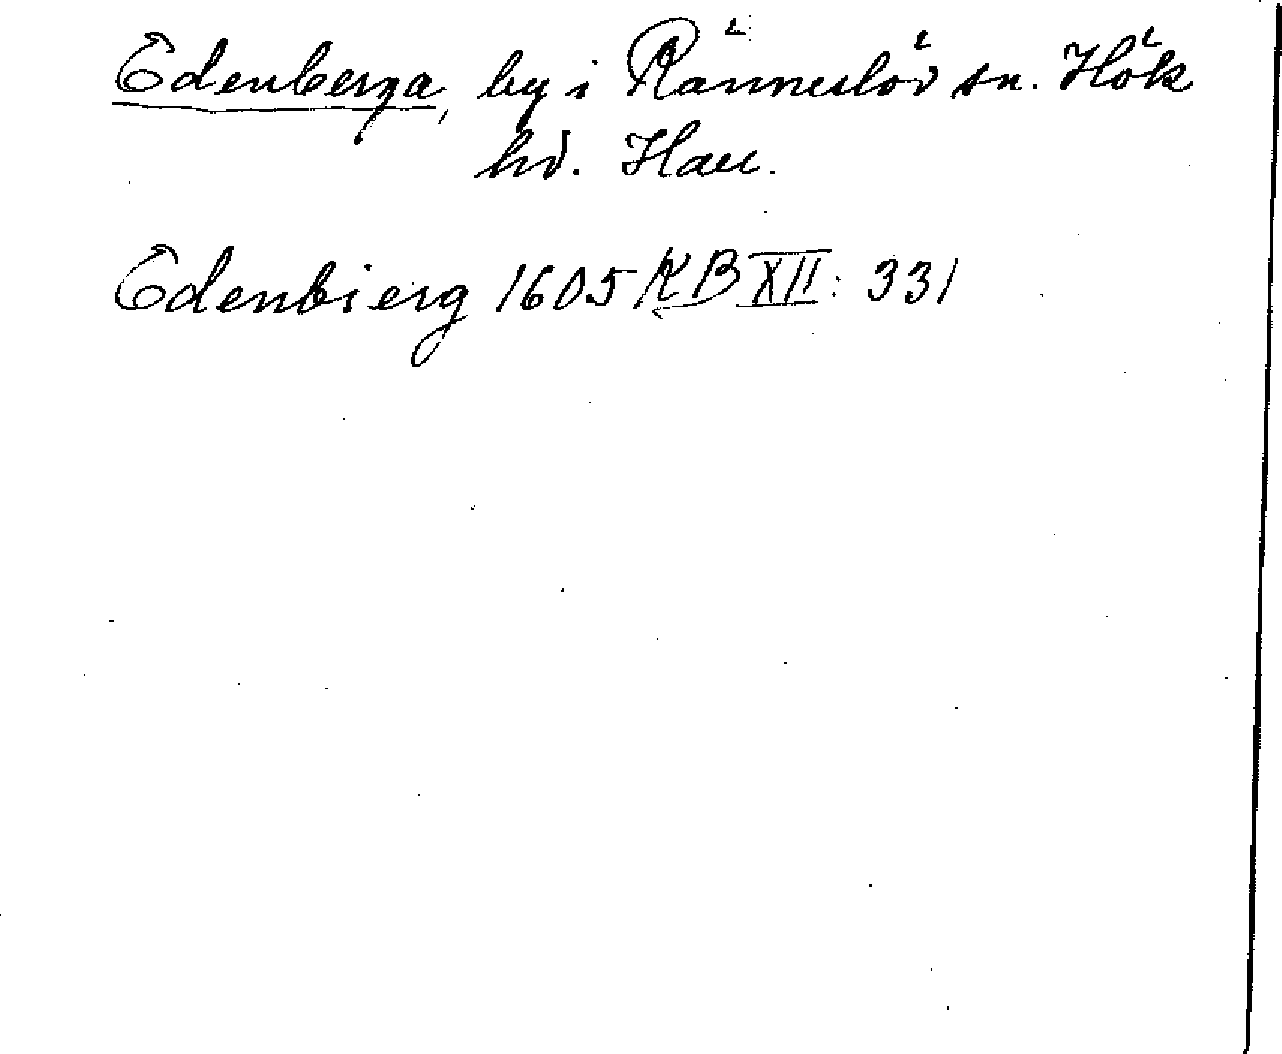 Edenberga, by i Ränneslöv sn. Hök
hd. Hall.
Edenbierg 1605 KB XII: 331